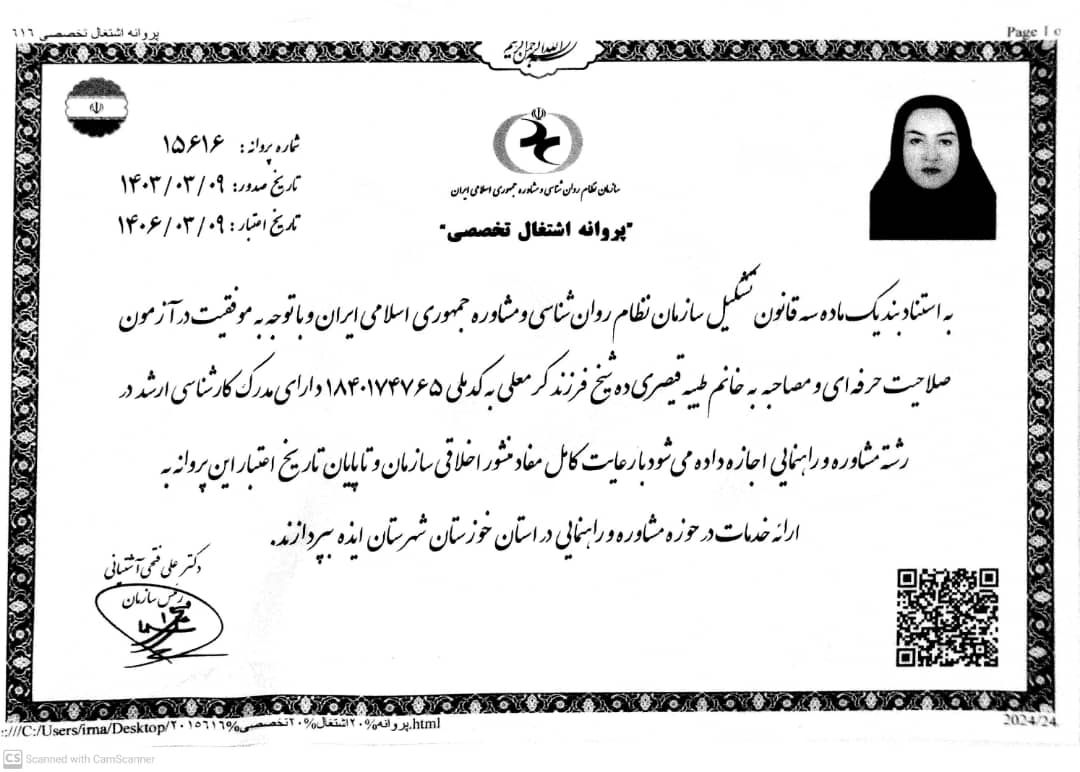 پروانه اشتغال تخصصی ٦١٦
Page 1 o
شماره پروانه: ۱۵۶۱۶
تاریخ صدور: ۱۴۰۳/۰۳/۰۹
تاریخ اعتبار: ۱۴۰۶/۰۳/۰۹
سازمان نظام روان شناسی و مشاوره جمهوری اسلامی ایران
"پروانه اشتغال تخصصی"
به استناد بند یک ماده سه قانون تشکیل سازمان نظام روان شناسی و مشاوره جمهوری اسلامی ایران و با توجه به موفقیت در آزمون
صلاحیت حرفه ای و مصاحبه به خانم طیبه قیصری ده شیخ فرزند کرمعلی به کدملی ۱۸۴۰۱۷۴۷۶۵ دارای مدرک کارشناسی ارشد در
رشته مشاوره و راهنمایی اجازه داده می شود با رعایت کامل مفاد منشور اخلاقی سازمان و تا پایان تاریخ اعتبار این پروانه به
ارائه خدمات در حوزه مشاوره و راهنمایی در استان خوزستان شهرستان ایذه بپردازند.
دکتر علی فتحی آشتیانی
رئیس سازمان
:///C:/Users/irna/Desktop/۲۰۱۵۶۱۶%پروانه%۲۰اشتغال%۲۰تخصصی.html
2024/24
CS Scanned with CamScanner